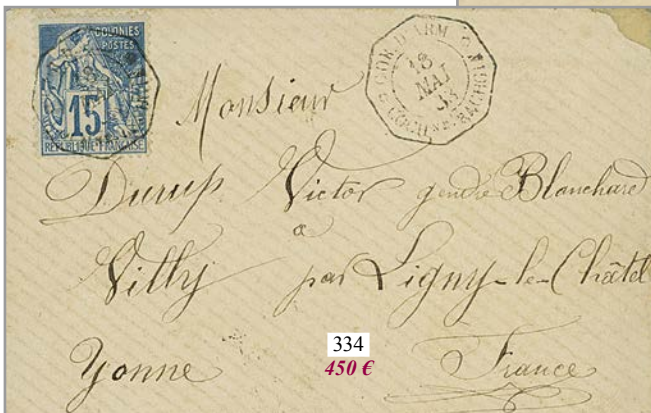 COLONIES
POSTES
15
REPUBLIQUE FRANCAISE
COR. D. ARM.
18
MAI
Monsieur
Durup Victor gendre Blanchard
à
Villy par Ligny-le-Châtel
Yonne France
334
450 €